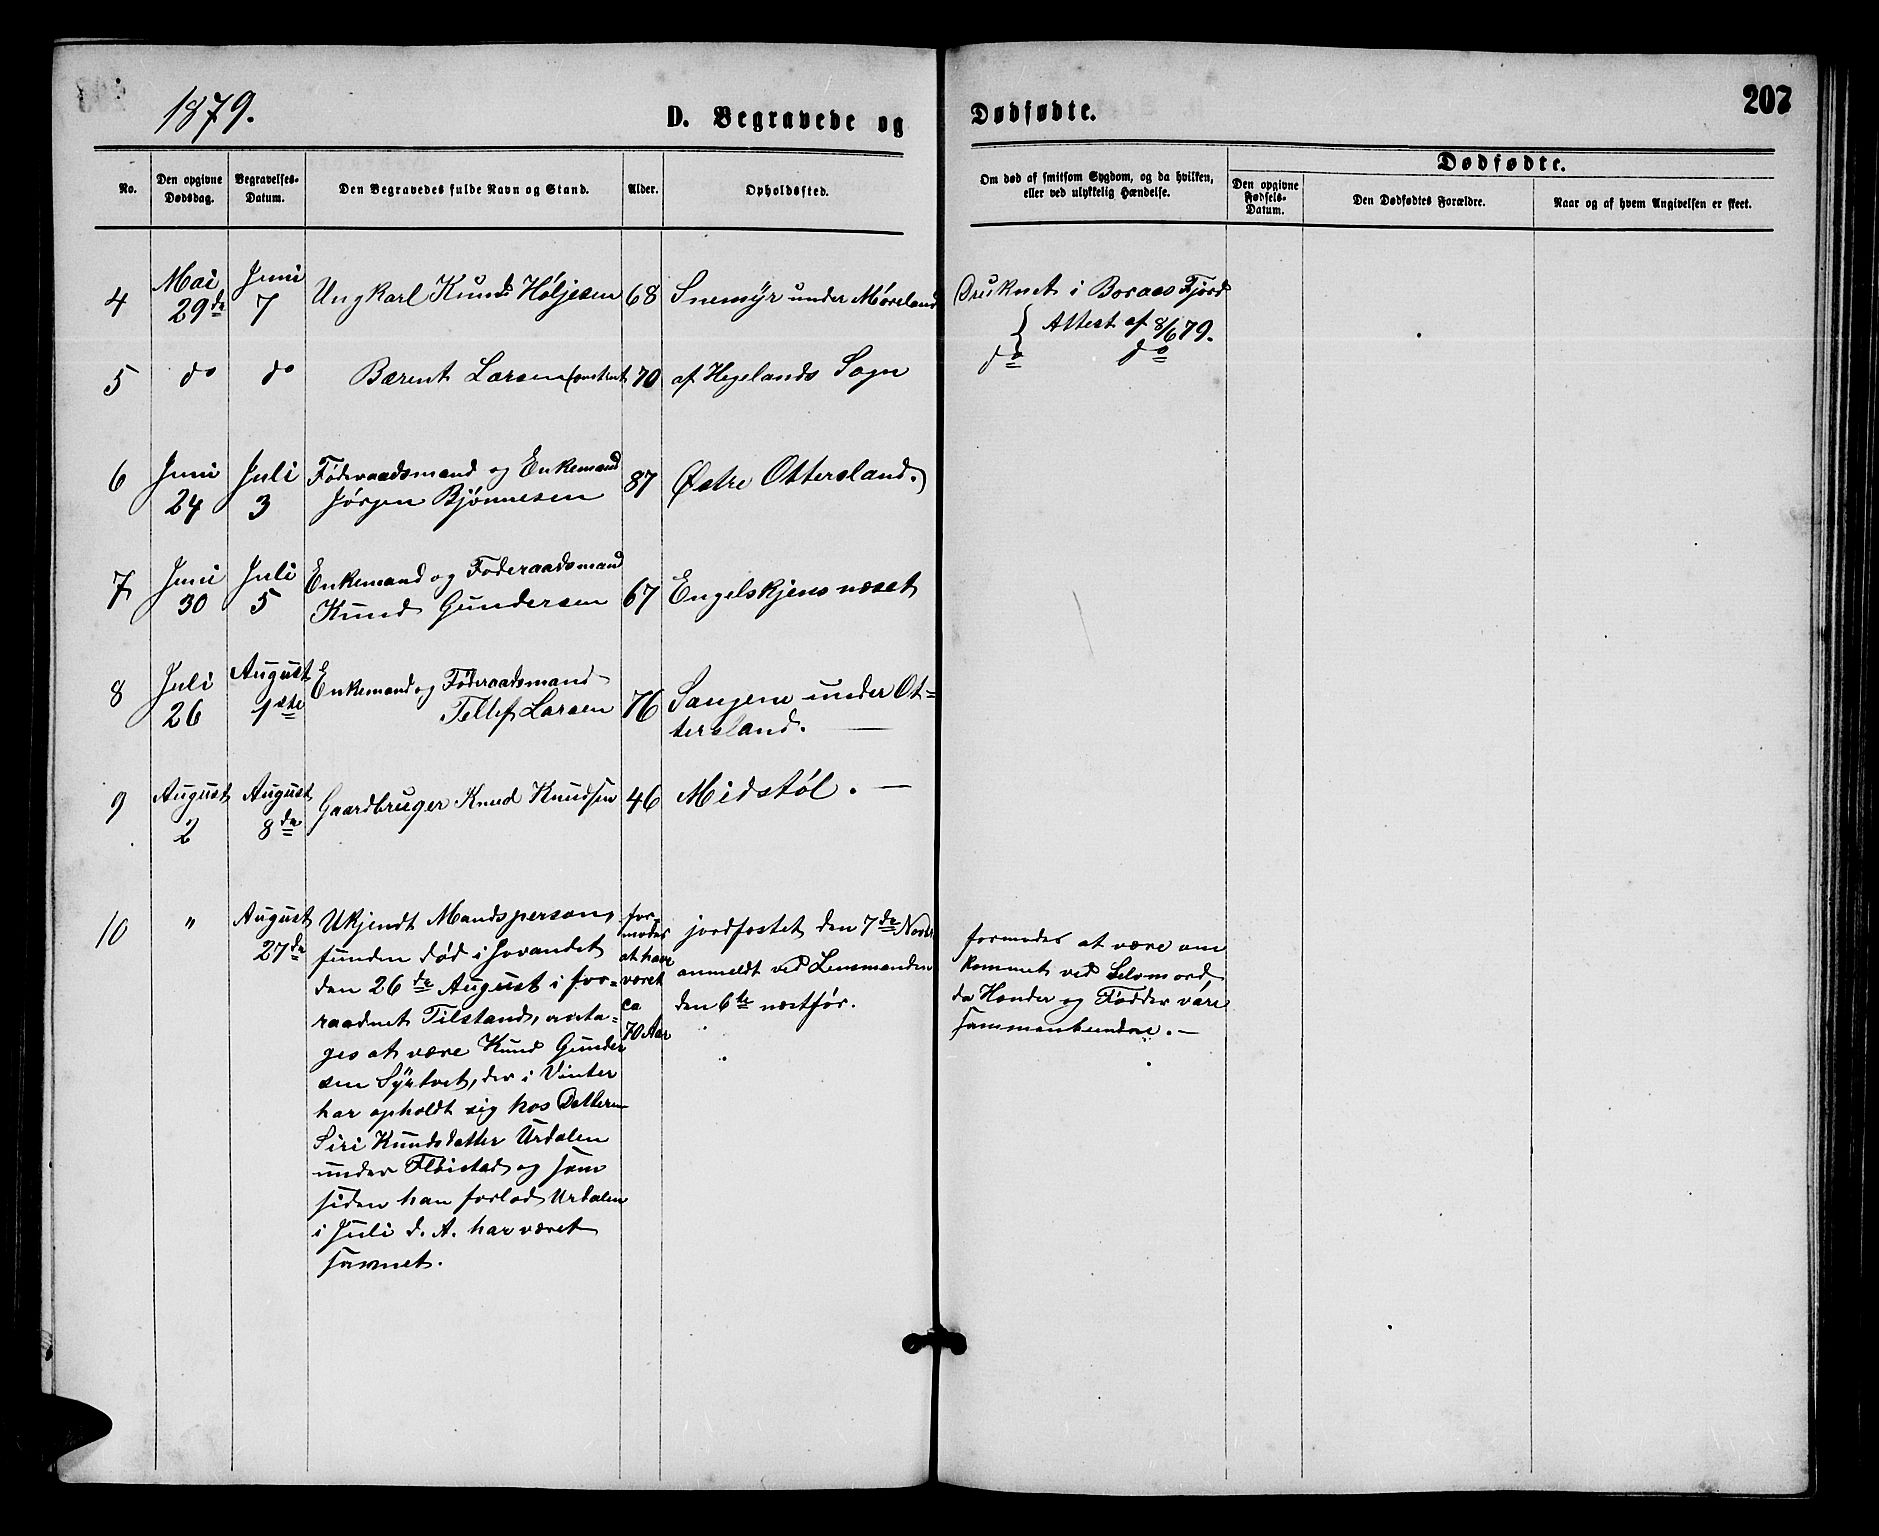 1879.
D. Begravede og
Dødfødte.
207
No.
Den opgivne Dødsdag.
Begravelses-Datum.
Den Begravedes fulde Navn og Stand.
Alder.
Opholdssted.
Om død af smitsom Sygdom, og da hvilken, eller ved ulykkelig Hændelse.
Dødfødte.
Den opgivne Fødsels-Datum.
Den Dødfødtes Forældre.
Naar og af hvem Angivelsen er skeet.
4
Mai 29de
Juni 7
Ungkarl Knud Høljesen
68
Snemyr under Møreland
Druknet i Boraas Fjord
Attest af 8/6 79.
5
do
do
Bærent Larsen
70
af Hegelands Sogn
do do
6
Juni 24
Juli 3
Føderaadsmand og Enkemand
Jørgen Bjønnesen
87
Østre Ottersland.
7
Juni 30
Juli 5
Enkemand og Føderaadsmand
Knud Gundersen
67
Engelskjensnæset
8
Juli 26
August 1ste
Enkemand og Føderaadsmand
Tellef Larsen
76
Sangene under Ot=
tersland.
9
August 2
August 8de
Gaardbruger Knud Knudsen
46
Midstøl.
10
"
August 27de
Ukjendt Mandsperson,
funden død i Sovandet
den 26de August i for-
raadnet Tilstand, anta-
ges at være Knud Gunder
sen Syrtvet, der i Vinter
har opholdt sig hos Datteren
Siri Knudsdatter Urdalen
under Fløistad og som
siden han forlod Urdalen
i Juli d. A. har været
savnet.
for-
modes
at have
været
ca
70 Aar
jordfæstet den 7de Novbr
anmeldt ved Lensmanden
den 6te næstfør.
formodes at være om
kommet ved Selvmord,
da Hænder og Fødder vare
sammenbundne.